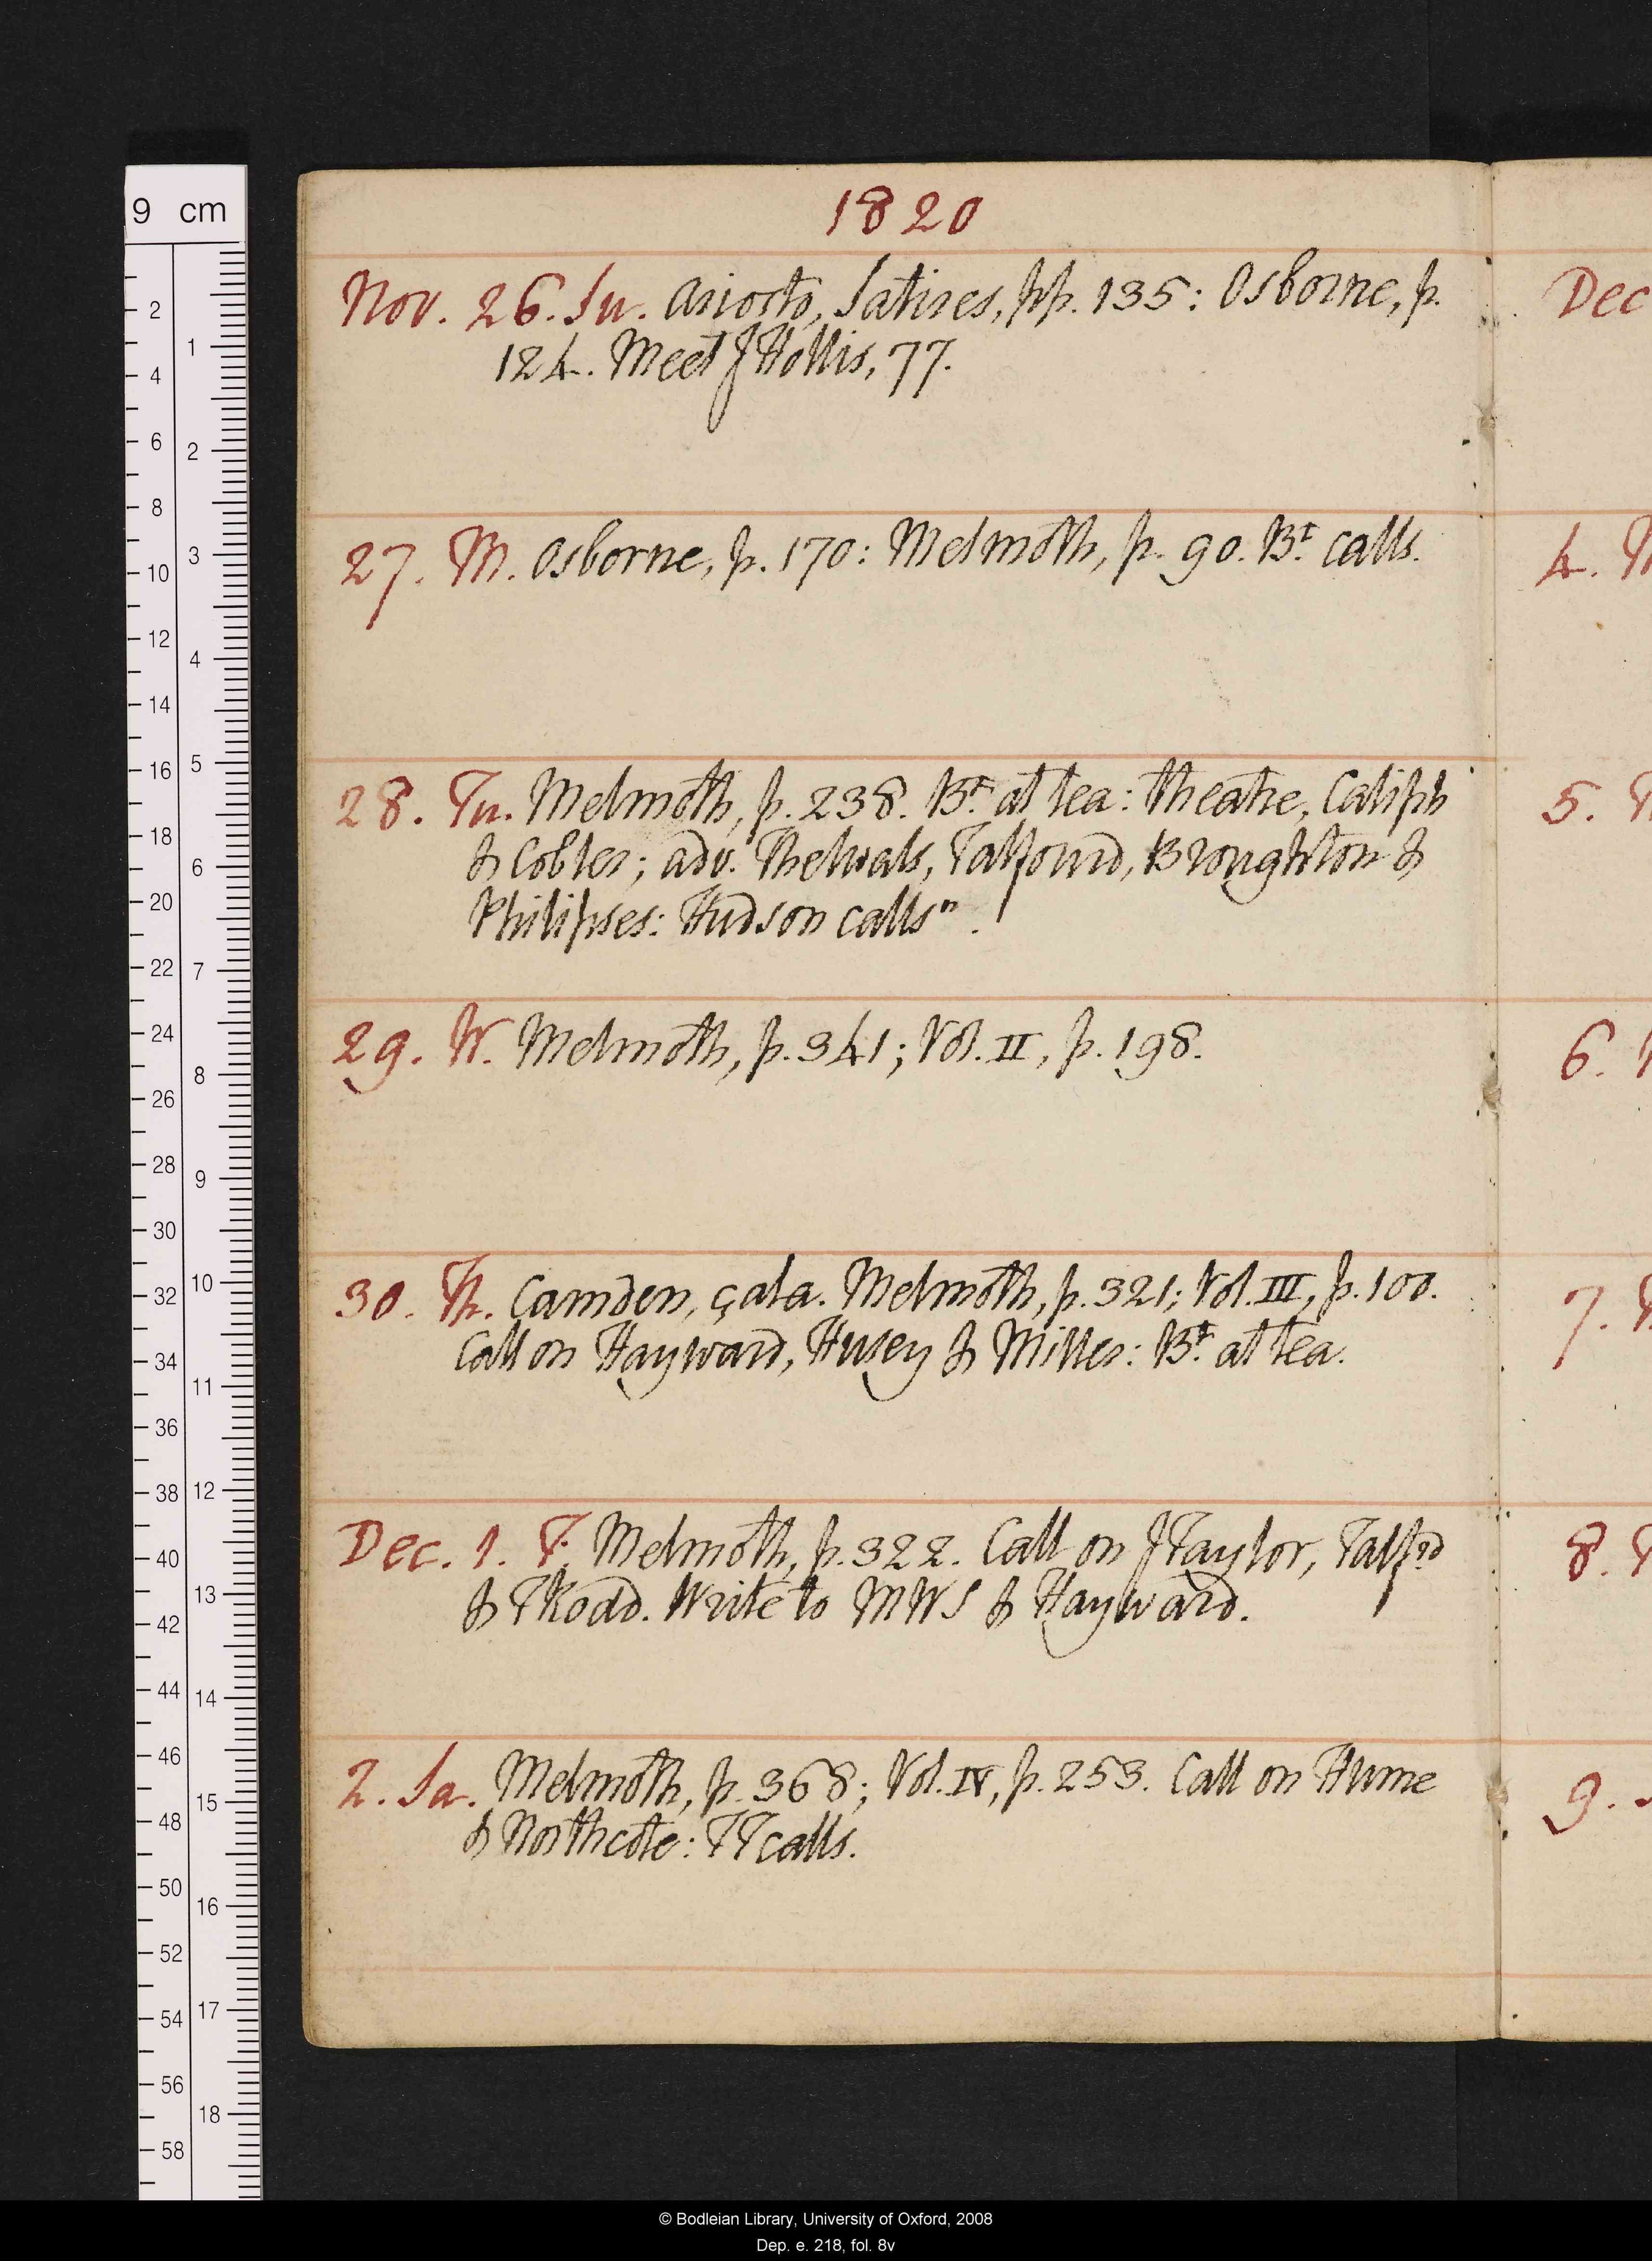 1820
Nov. 26. Su. Ariosto, Satires, pp. 135: Osborne, p.
124. Meet J Hollis, 77.
27. M. Osborne, p. 170: Melmoth, p. 90. Bt calls.
28. Tu. Melmoth, p. 238. Bt at tea: theatre, Caliph
& Cobler; adv. Thelwals, Talfourd, Broughton &
Philipses: Hudson calls n.
29. W. Melmoth, p. 341; Vol. II, p. 198.
30. Th. Camden, çala. Melmoth, p. 321; Vol. III, p. 100.
Call on Hayward, Husey & Miller: Bt at tea.
Dec. 1. F. Melmoth, p. 322. Call on J Taylor, Talfrd
& T Rodd. Write to MWS & Hayward.
2. Sa. Melmoth, p. 368; Vol. IV, p. 253. Call on Hume
& Northcote: TT calls.
Dec
4.
5.
6.
7.
8.
9.
9 cm
2
4
6
8
10
12
14
16
18
20
22
24
26
28
30
32
34
36
38
40
42
44
46
48
50
52
54
56
58
1
2
3
4
5
6
7
8
9
10
11
12
13
14
15
16
17
18
© Bodleian Library, University of Oxford, 2008
Dep. e. 218, fol. 8v